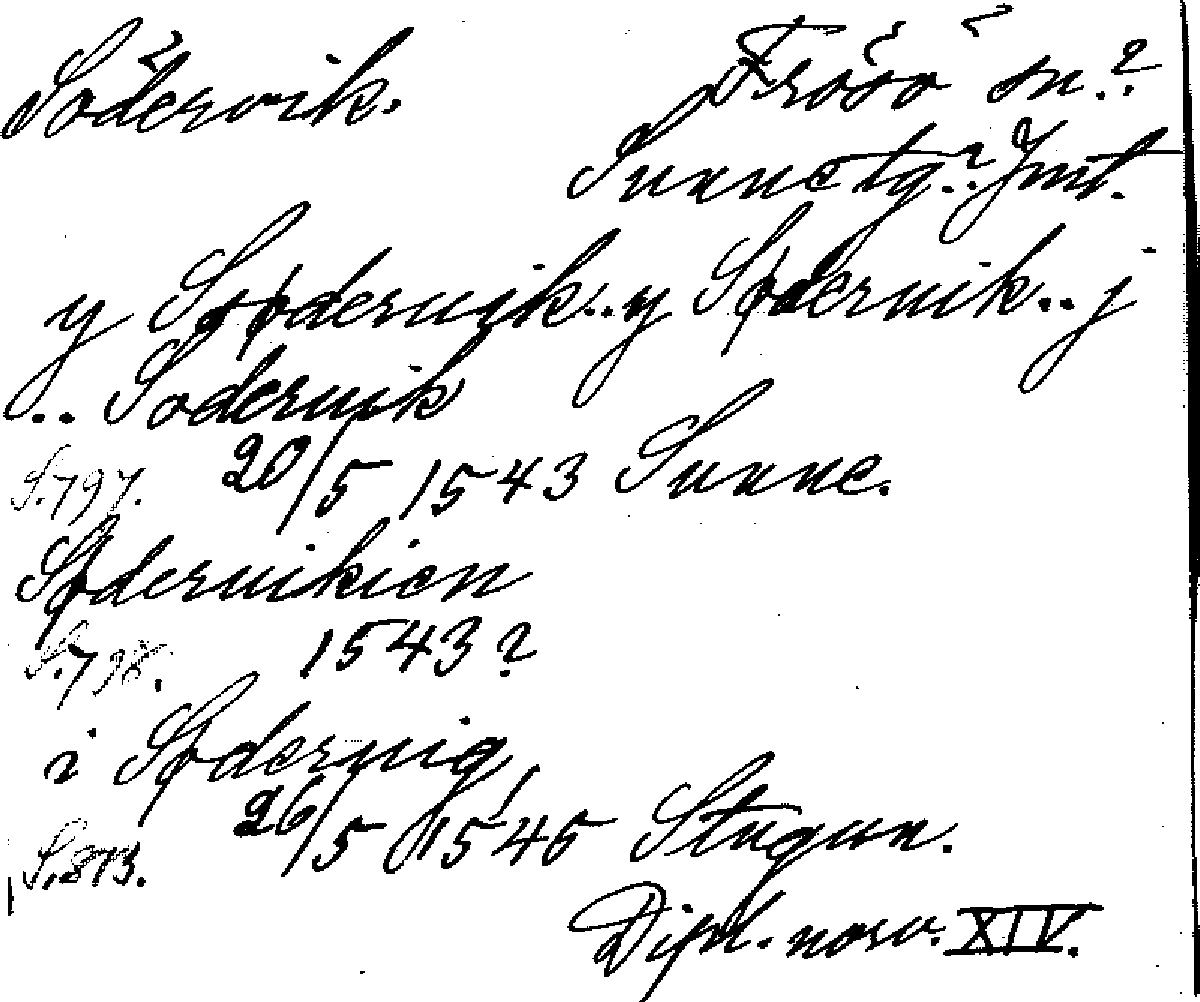 Södervik. Frösö sn.?
Sunne tg.? Jmt.
y Sødervik..y Sødervik..j
.. Sodervik
S.797. 20/5 1543 Sunne.
Sødervikien
S.798. 1543?
i Søderuig
S.813. 26/5 1545 Stugun.
Dipl. norv. XIV.